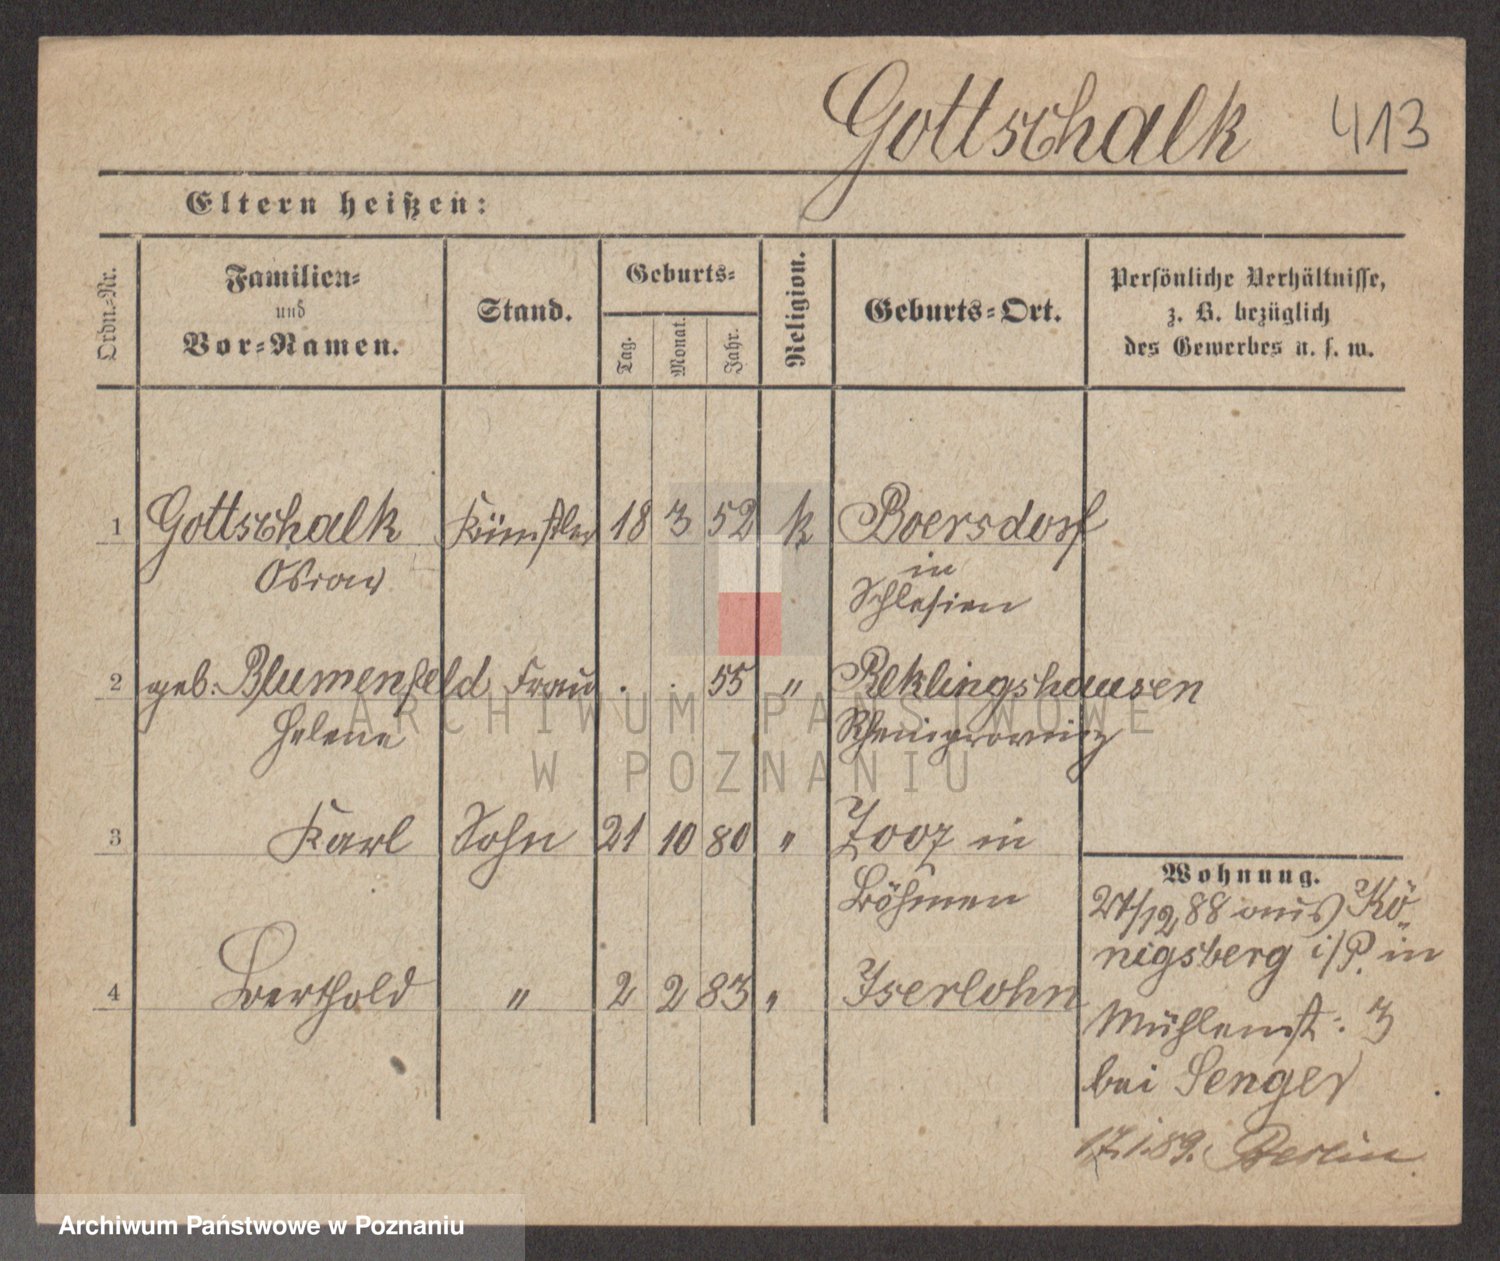 Gottschalk 413
Eltern heißen:
Ordn.-Nr.
Familien=
und
Vor=Namen.
Stand.
Geburts=
Tag.
Monat.
Jahr.
Religion.
Geburts=Ort.
Persönliche Verhältnisse,
z. B. bezüglich
des Gewerbes u. s. w.
1 Gottschalk Künstler 18 3 52 k Boersdorf
in
Schlesien
2 geb. Blumenfeld Frau . . 55 " Reklingshausen
Helene Rheinprovinz
3 Karl Sohn 21 10 80 " in
Böhmen
4 Berthold " 2 2 83 " Iserlohn
Wohnung.
88 aus Kö-
nigsberg i/P. in
Mühlenst: 3
bei Senger
17.1.89. Berlin
ARCHIWUM PAŃSTWOWE
W POZNANIU
Archiwum Państwowe w Poznaniu